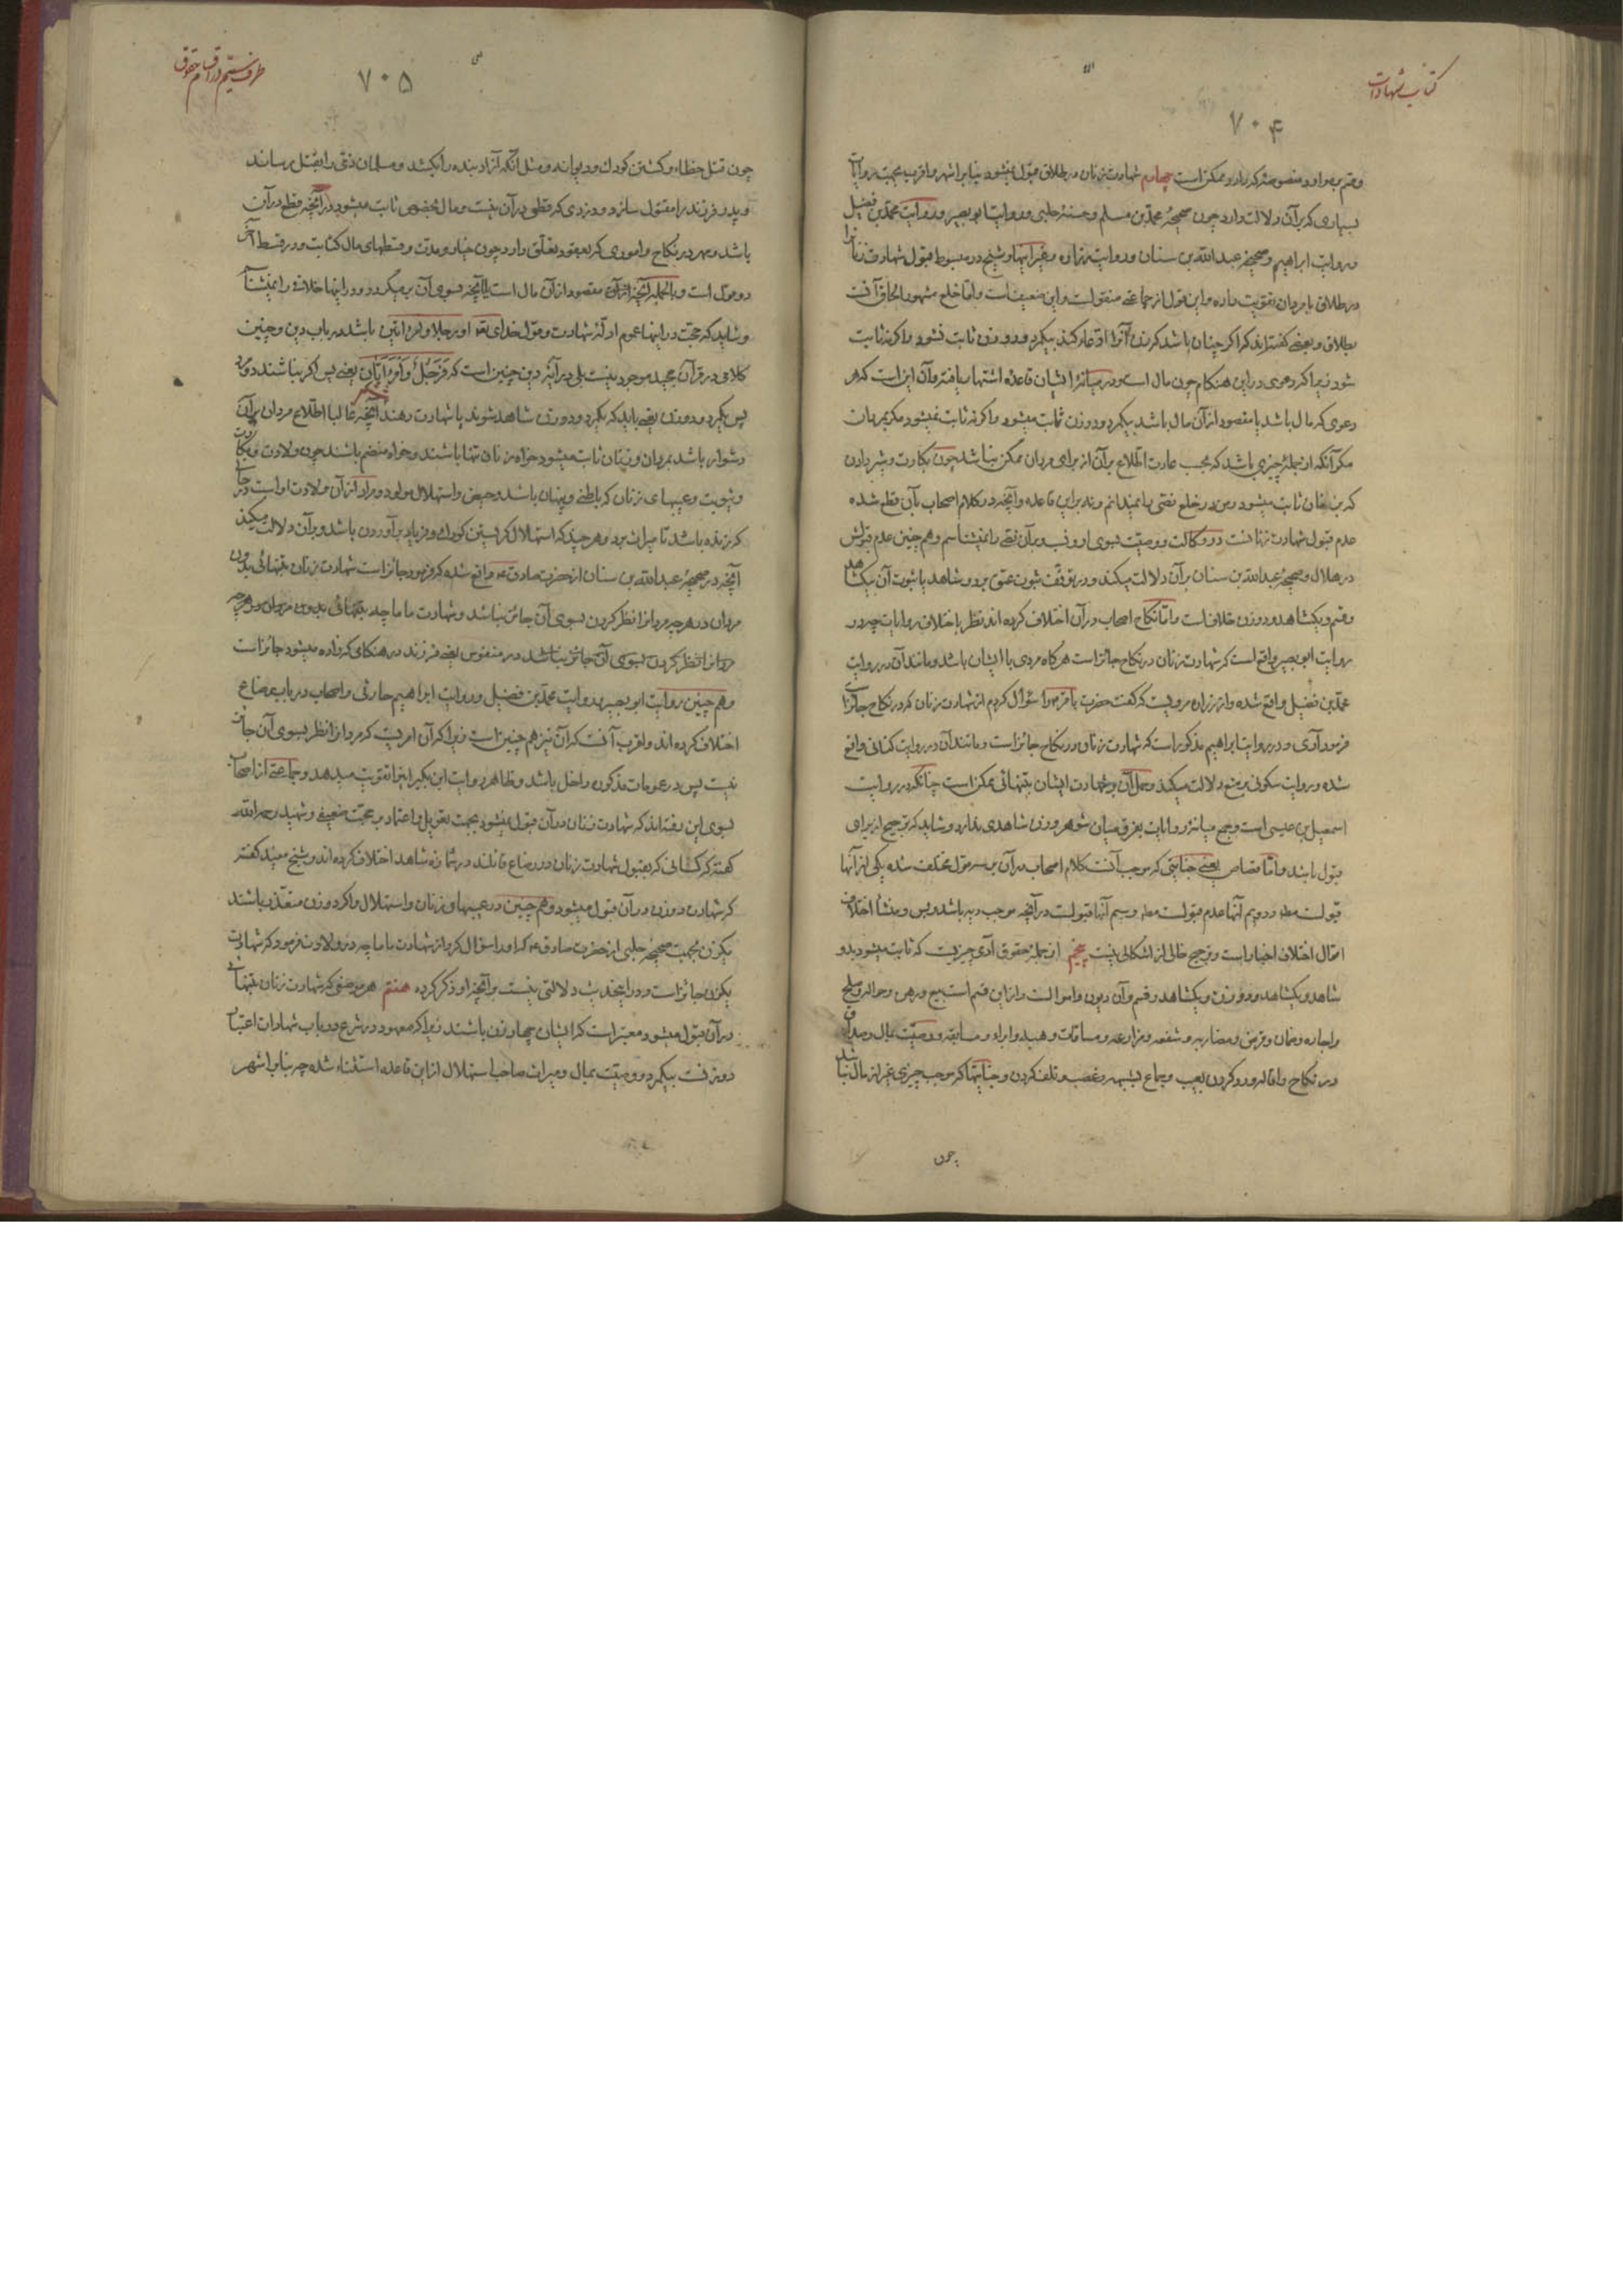 کتاب شهادات
۷۰۴
چهارم شهادت زنان در طلاق قبول نمیشود بنابر اشهر و اقرب بجهت روایات
بسیاری که بر آن دلالت دارد چون صحیحهٔ محمد بن مسلم و حسنهٔ حلبی و روایت ابو بصیر و روایت محمد بن فضیل
و روایت ابراهیم و صحیحهٔ عبدالله بن سنان و روایت زراره و غیر اینها و شیخ در مبسوط قبول شهادت زنان را
در طلاق با مردان تقویت داده و این قول از جماعتی منقولست و این ضعیف است و اما خلع مشهور الحاق آنست
بطلاق و بعضی گفته‌اند که اگر چنان باشد که زن آنرا ادعا کند بیکمرد و دو زن ثابت نشود و اگر نه ثابت
شود زیرا که دعوی در این هنگام چون مال است و در میانهٔ ایشان قاعدهٔ اشتهار یافته و آن این است که هر
دعوی که مال باشد یا مقصود از آن مال باشد بیکمرد و دو زن ثابت میشود و اگر نه ثابت نمیشود مگر بمردان
مگر آنکه از جملهٔ چیزی باشد که بحسب عادت اطلاع بر آن از برای مردان ممکن نباشد چون بکارت و شیر دادن
که بزنان ثابت میشود و من در خلع نصی را نمیدانم و نه بر این قاعده و آنچه در کلام اصحاب بآن قطع شده
عدم قبول شهادت زنانست در وکالت و وصیت بسوی او و نسب و بر آن نصی را نمیشناسم و هم چنین عدم قبولش
در هلال و صحیحهٔ عبدالله بن سنان بر آن دلالت میکند و در توقف ثبوت عتق بر دو شاهد یا ثبوت آن بیکشاهد
و قسم و یکشاهد و دو زن خلاف است و اما نکاح اصحاب در آن اختلاف کرده اند نظر باختلاف روایات چه در
روایت ابو بصیر واقع است که شهادت زنان در نکاح جائز است هر گاه مردی با ایشان باشد و مانند آن در روایت
محمد بن فضیل واقع شده و از زراره مرویست که گفت حضرت باقر را سؤال کردم از شهادت زنان که در نکاح جائز است
فرمود آری و در روایت ابراهیم مذکور است که شهادت زنان در نکاح جائز است و مانند آن در روایت کنانی واقع
شده و روایت سکونی بر منع دلالت میکند و حمل آن بر شهادت ایشان بتنهائی ممکن است چنانکه در روایت
اسمعیل بن عیسی است و جمع میانهٔ روایات بفرق میان شوهر و زن شاهدی ندارد و شاید که ترجیح از برای
قبول باشد و اما قصاص یعنی جنایتی که موجب آنست کلام اصحاب در آن بر سه قول مختلف شده یکی از آنها
قبولست مط و دویم آنها عدم قبولست مط و سیم آنها قبولست در آنچه موجب دیه باشد و بس و منشأ اختلاف
اقوال اختلاف اخبار است و ترجیح خالی از اشکالی نیست پنجم از جملهٔ حقوق آدمی چیزیست که ثابت میشود بدو
شاهد و بیکشاهد و دو زن و بیکشاهد و قسم و آن دیون و اموالست و از این قسم است بیع و رهن و حواله و صلح
و اجاره و ضمان و قرض و مضاربه و شفعه و مزارعه و مساقات و هبه و ابراء و مسابقه و وصیت بمال و صداق
در نکاح و اقاله و رد کردن بعیب و جماع بشبهه و غصب و تلف کردن و جنایتها که موجب چیزی غیر از مال نباشد
چون
طرف ششم در اقسام حقوق
۷۰۵
چون قتل خطاء و کشتن کودک و دیوانه و مثل آنکه آزاد بنده را بکشد و مسلمان ذمی را بقتل رساند
و پدر فرزند را مقتول سازد و دزدی که قطعی در آن نیست و مال بخصوص ثابت میشود در آنچه قطع در آن
باشد و مهر در نکاح و اموری که بعقود تعلق دارد چون خیار و مدت و قسطهای مال کتابت و در قسط آخر
دو قول است و بالجمله آنچه از آن مقصود از آن مال است یا آنچه بسوی آن برمیگردد و در اینها خلافی را نمیشناسم
و شاید که حجت در اینها عموم ادلهٔ شهادت و قول خدای تعه او رجلا و امراتین باشد در باب دین و چنین
کلامی در قرآن مجید موجود نیست بلی در آیهٔ دین چنین است که فرجل و امراتان یعنی پس اگر نباشند دو مرد
پس یکمرد و دو زن یعنی باید که یکمرد و دو زن شاهد شوند یا شهادت دهند آنچه غالبا اطلاع مردان بر آن
دشوار باشد بمردان و زنان ثابت میشود خواه زنان تنها باشند و خواه منضم باشند چون ولادت و بکارت
و ثیوبت و عیبهای زنان که باطنی و پنهان باشد و حیض و استهلال مولود و مراد از آن ولادت او است در حالتی
که زنده باشد تا میراث برد و هر چند که استهلال گریستن کودک و فریاد بر آوردن باشد و بر آن دلالت میکند
آنچه در صحیحهٔ عبدالله بن سنان از حضرت صادق ع واقع شده که فرمود جائز است شهادت زنان بتنهائی بدون
مردان در هر چه مردانرا نظر کردن بسوی آن جائز نباشد و شهادت ماماچه بتنهائی بدون مردان در هر چه
مردانرا نظر کردن بسوی آن جائز نباشد در منفوس یعنی فرزند در هنگامی که زاده میشود جائز است
و هم چنین روایت ابو بصیر و روایت محمد بن فضیل و روایت ابراهیم حارثی و اصحاب در باب رضاع
اختلاف کرده اند و اقرب آنست که آن نیز هم چنین است زیرا که آن امریست که مردانرا نظر بسوی آن جائز
نیست پس در عمومات مذکوره داخل باشد و ظاهر روایت ابن بکیر اینرا تقویت میدهد و جماعتی از اصحاب
بسوی این رفته‌اند که شهادت زنان در آن قبول نمیشود بجهت تعویل و اعتماد بر حجت ضعیف و شهید رحمه الله
گفته که کسانی که بقبول شهادت زنان در رضاع قائلند در شمارهٔ شاهد اختلاف کرده اند و شیخ مفید گفته
که شهادت دو زن در آن قبول میشود و هم چنین در عیبهای زنان و استهلال و اگر دو زن متعذر باشند
یکزن بجهت صحیحهٔ حلبی از حضرت صادق ع که او را سؤال کرد از شهادت ماماچه در ولادت فرمود که شهادت
یکزن جائز است و در اینحدیث دلالتی نیست بر آنچه او ذکر کرده هفتم هر موضعی که شهادت زنان بتنهائی
در آن قبول میشود معتبر است که ایشان چهار زن باشند زیرا که معهود در شرع در باب شهادات اعتبار
دو زنست بیکمرد و وصیت بمال و میراث صاحب استهلال از این قاعده استثناء شده چه بنابر اشهر